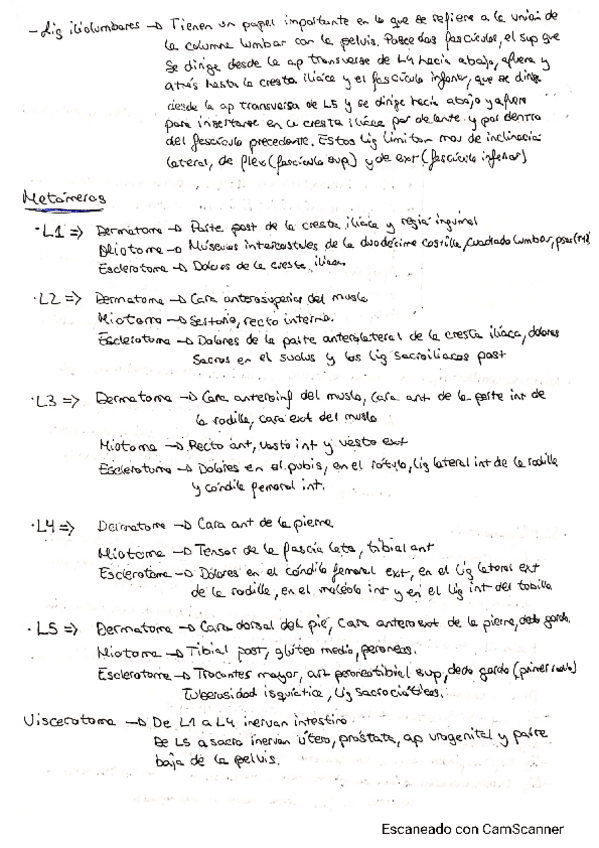 - Lig iliolumbares → Tienen un papel importante en lo que se refiere a la unión de
la columna lumbar con la pelvis. Posee dos fascículos, el sup que
se dirige desde la ap transversa de L4 hacia abajo, afuera y
atrás hasta la cresta iliaca y el fascículo inferior, que se dirige
desde la ap transversa de L5 y se dirige hacia abajo y afuera
para insertarse en la cresta iliaca por delante y por dentro
del fascículo precedente. Estos lig limitan mov de inclinación
lateral, de flex (fascículo sup) y de ext (fascículo inferior)
Metámeros
· L1 => Dermatoma → Parte post de la cresta iliaca y región inguinal
Miotoma → Músculos intercostales de la duodécima costilla, cuadrado lumbar, psoas
Esclerotoma → Dolores de la cresta iliaca.
· L2 => Dermatoma → Cara anterosuperior del muslo
Miotoma → Sartorio, recto interno.
Esclerotoma → Dolores de la parte anterolateral de la cresta iliaca, dolores
sacros en el y los lig sacroiliacos post
· L3 => Dermatoma → Cara anteroinf del muslo, cara ant de la parte int de
la rodilla, cara ext del muslo
Miotoma → Recto ant, vasto int y vasto ext
Esclerotoma → Dolores en el pubis, en el rótula, lig lateral int de la rodilla
y cóndilo femoral int.
· L4 => Dermatoma → Cara ant de la pierna
Miotoma → Tensor de la fascia lata, tibial ant
Esclerotoma → Dolores en el cóndilo femoral ext, en el lig lateral ext
de la rodilla, en el maléolo int y en el lig int del tobillo
· L5 => Dermatoma → Cara dorsal del pie, cara anteroext de la pierna, dedo gordo.
Miotoma → Tibial post, glúteo medio, peroneos.
Esclerotoma → Trocánter mayor, art peroneotibial sup, dedo gordo (primer radio)
Tuberosidad isquiática, lig sacrociáticos.
Viscerotoma → De L1 a L4 inervan intestino
De L5 a sacro inervan útero, próstata, ap urogenital y parte
baja de la pelvis.
Escaneado con CamScanner